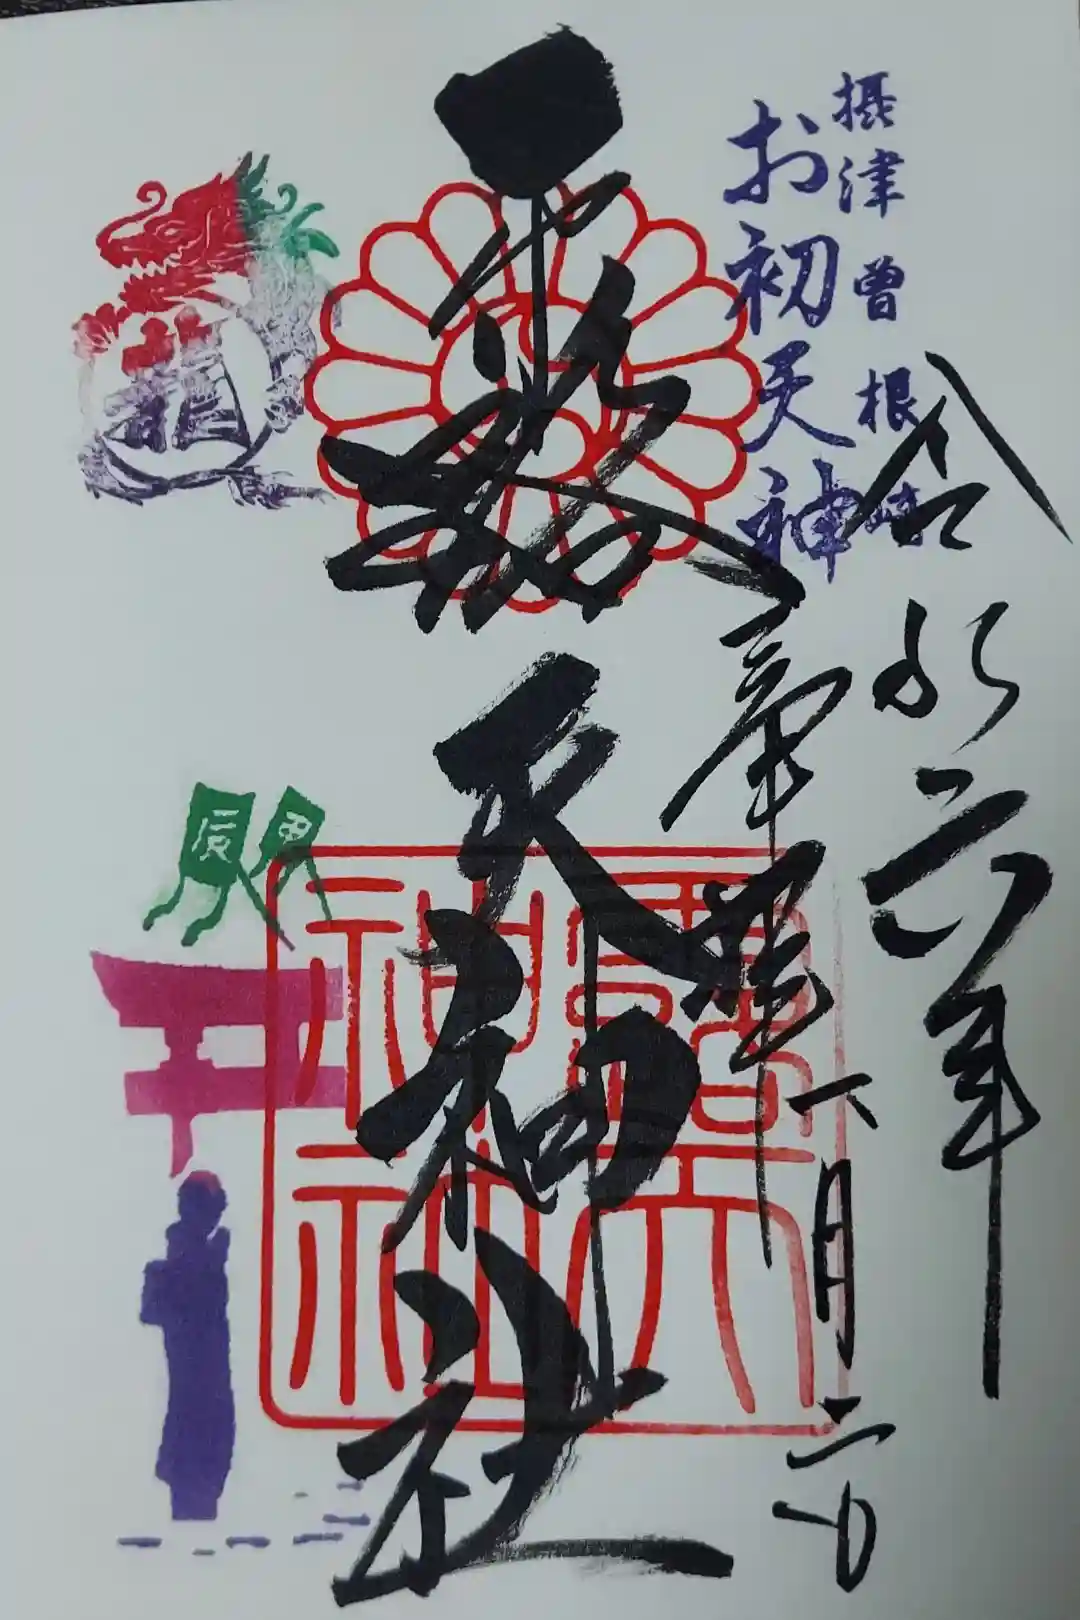 摂津曽根崎
お初天神
令和六年
奉拝 一月二日
露天神社
龍
辰
露天神社